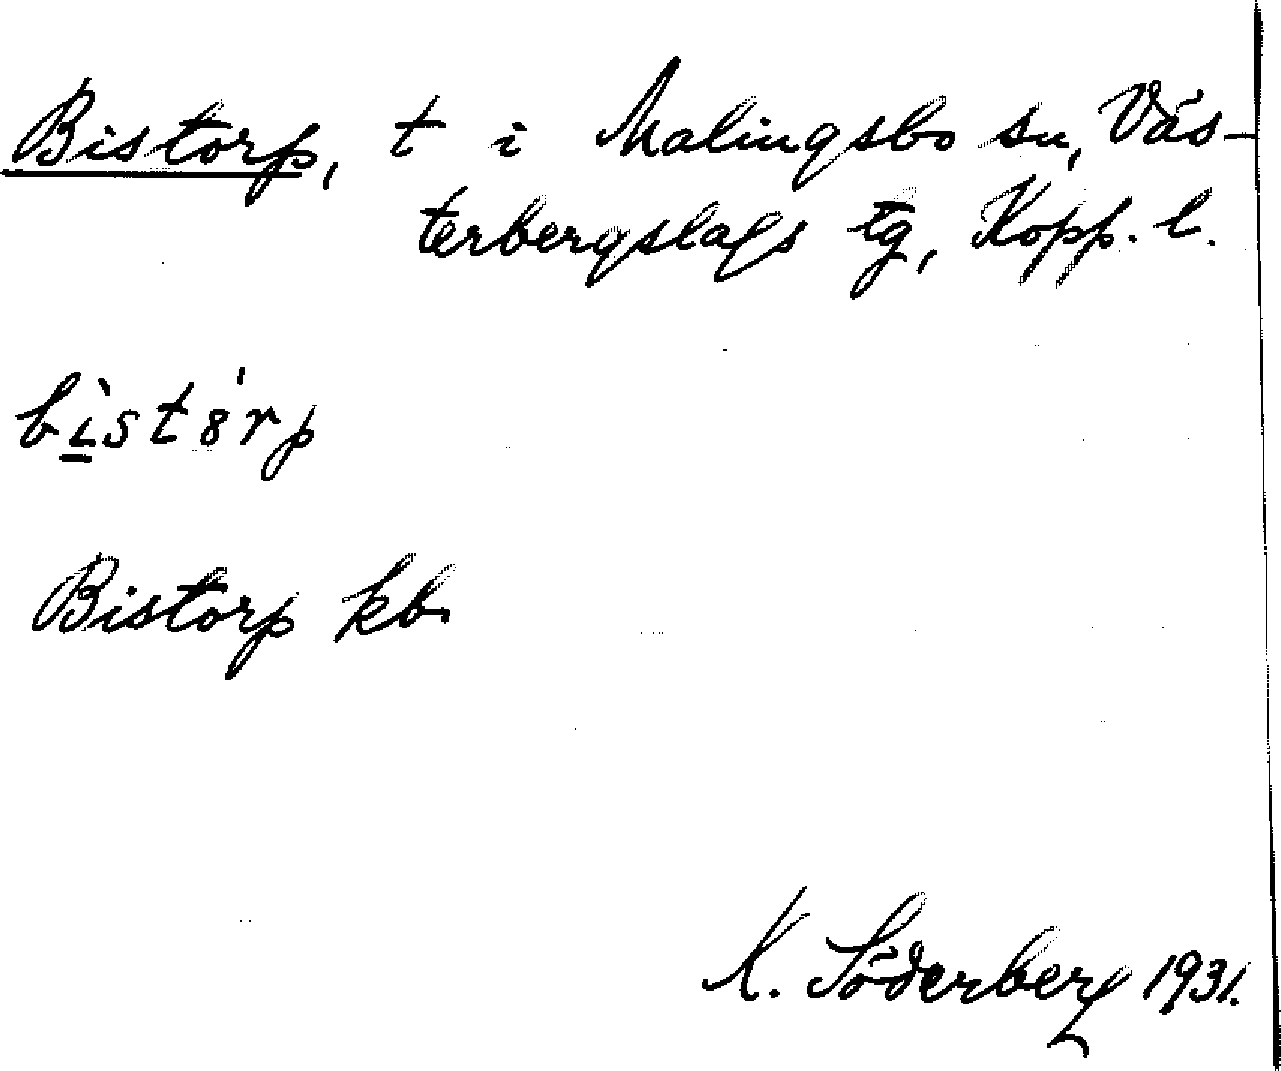 Bistorp, t i Malingsbo sn, Väs-
terbergslags tg, Kopp. l.
bìst8'rp
Bistorp kb.
K. Söderberg 1931.